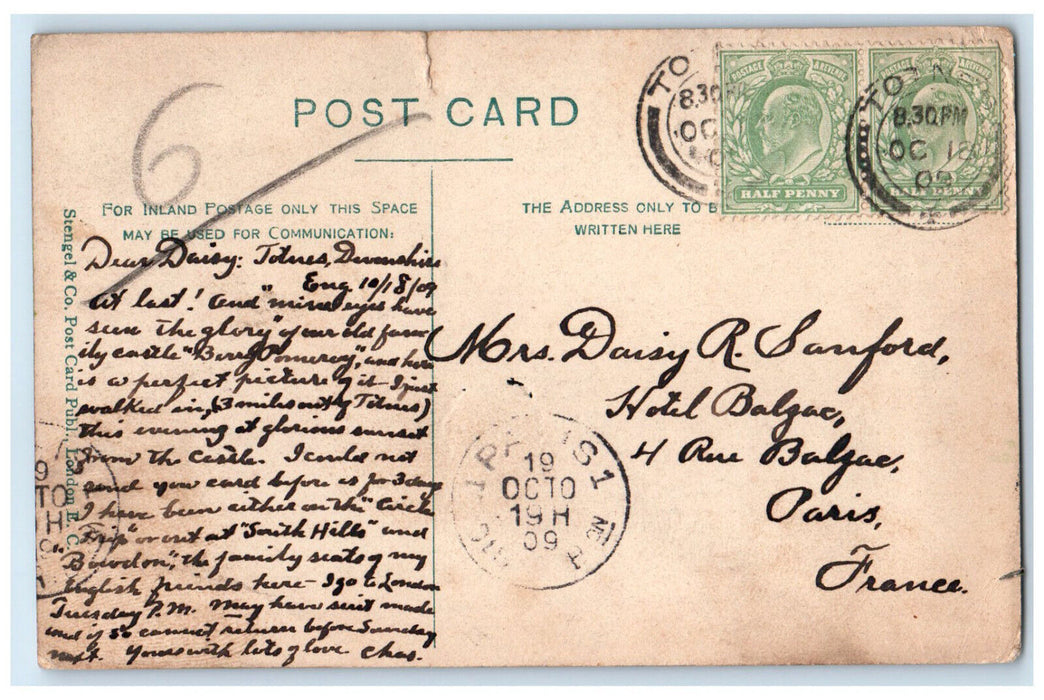 POST CARD
6
FOR INLAND POSTAGE ONLY THIS SPACE
MAY BE USED FOR COMMUNICATION:
THE ADDRESS ONLY TO B
WRITTEN HERE
Stengel & Co. Post Card Publ., London E. C.
POSTAGE & REVENUE
HALF PENNY
POSTAGE REVENUE
HALF PENNY
TO
8.30PM
OC
TOTNE
8.30PM
OC 18
09
Dear Daisy: Totnes, Devonshire
Eng 10/18/09
At last! And "mine eyes have
seen the glory" of our old fam
ily castle "Berry Pomeroy", and here
is a perfect picture of it. I just
walked in, (3 miles out of Totnes)
this evening at glorious sunset
from the castle. I could not
send you card before as for 3 days
I have been either on the "Circle
Trip" or out at "South Hills" and
"Bowdon", the family seats of my
English friends here - I go to London
Tuesday P.M. May have suit made
and if so cannot return before Sunday
next. Yours with lots of love Chas.
Mrs. Daisy R. Sanford,
Hotel Balzac,
4 Rue Balzac,
Paris,
France.
19
OCTO
19 H
09